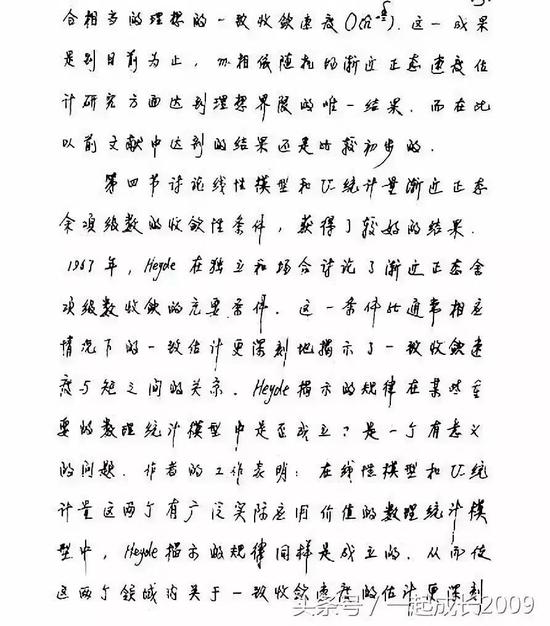 合相当的理想的一致收敛速度O(n^{-δ/2}). 这一成果
是到目前为止, m相依随机场渐近正态速度估
计研究方面达到理想界限的唯一结果. 而在此
以前文献中达到的结果还是比较初步的.
第四节讨论线性模型和U-统计量渐近正态
余项级数的收敛性条件, 获得了较好的结果.
1967年, Heyde 在独立和场合讨论了渐近正态余
项级数收敛的充要条件. 这一条件比通常相应
情况下的一致估计更深刻地揭示了一致收敛速
度与矩之间的关系. Heyde揭示的规律在某些重
要的数理统计模型中是否成立? 是一个有意义
的问题. 作者的工作表明: 在线性模型和U-统
计量这两个有广泛实际应用价值的数理统计模
型中, Heyde揭示的规律同样是成立的. 从而使
这两个领域内关于一致收敛速度的估计更深刻
头条号 / 一起成长2009